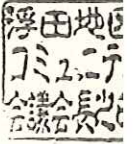 浮田地区
コミュニテ
会議会長